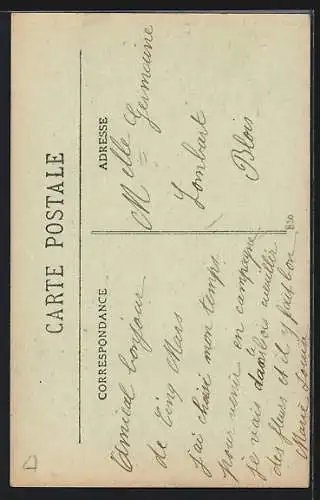 CARTE POSTALE
CORRESPONDANCE
ADRESSE
Amical bonjour
de Cinq Mars
j'ai choisi mon temps
pour venir en campagne
je vais dans les cueillir
des fleurs et il y fait bon
Marie Louise
Melle Germaine
Lombart
Blois
B20
D